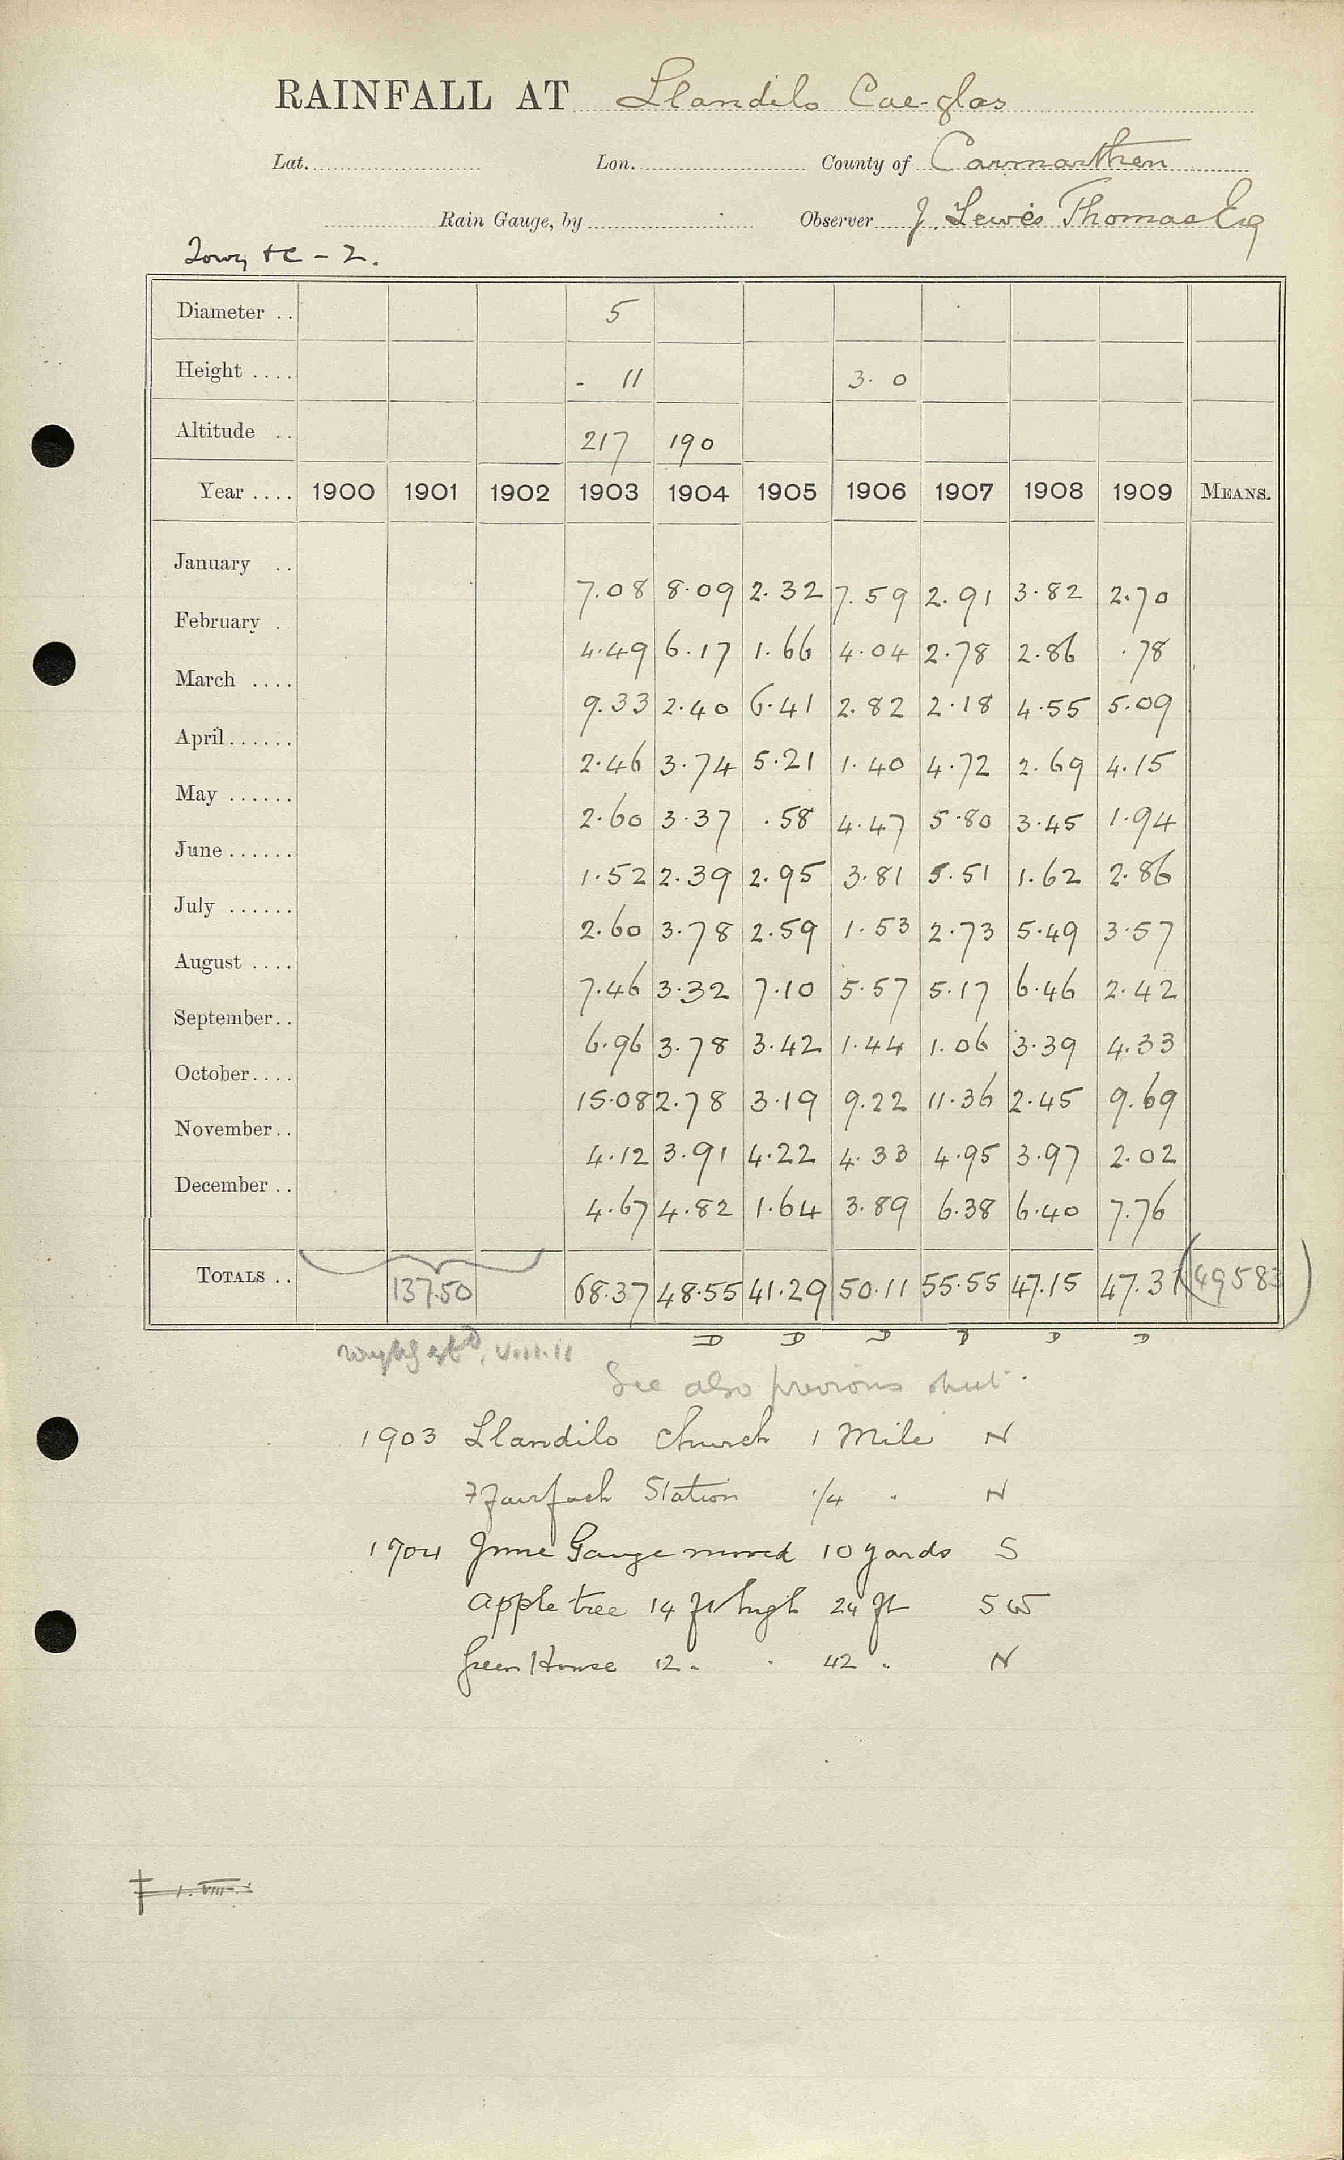 RAINFALL AT Llandilo Cae-glas
Lat. Lon. County of Carmarthen
Rain Gauge, by Observer J. Lewis Thomas Esq
Towy &c - 2.
Diameter .. 5
Height .... - 11 3. 0
Altitude .. 217 190
Year .... 1900 1901 1902 1903 1904 1905 1906 1907 1908 1909 MEANS.
January .. 7.08 8.09 2.32 7.59 2.91 3.82 2.70
February . 4.49 6.17 1.66 4.04 2.78 2.86 .78
March .... 9.33 2.40 6.41 2.82 2.18 4.55 5.09
April...... 2.46 3.74 5.21 1.40 4.72 2.69 4.15
May ...... 2.60 3.37 .58 4.47 5.80 3.45 1.94
June...... 1.52 2.39 2.95 3.81 5.51 1.62 2.86
July ...... 2.60 3.78 2.59 1.53 2.73 5.49 3.57
August .... 7.46 3.32 7.10 5.57 5.17 6.46 2.42
September.. 6.96 3.78 3.42 1.44 1.06 3.39 4.33
October.... 15.08 2.78 3.19 9.22 11.36 2.45 9.69
November.. 4.12 3.91 4.22 4.33 4.95 3.97 2.02
December .. 4.67 4.82 1.64 3.89 6.38 6.40 7.76
TOTALS .. 137.50 68.37 48.55 41.29 50.11 55.55 47.15 47.31 (49583)
D D D D D D
VIII.11
See also previous sheet.
1903 Llandilo Church 1 Mile N
Fairfach Station 1/4 " N
1904 June Gauge moved 10 yards S
Apple tree 14 ft high 24 ft SW
Green House 12 " " 42 " N
1. VIII.